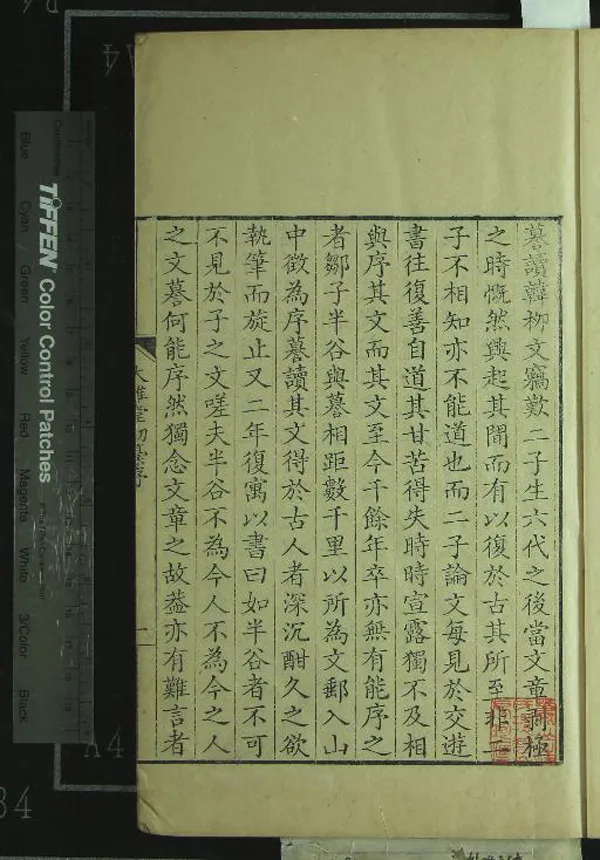 暮讀韓柳文竊歎二子生六代之後當文章衰極
之時慨然興起其間而有以復於古其所至非二
子不相知亦不能道也而二子論文每見於交遊
書往復善自道其甘苦得失時時宣露獨不及相
與序其文而其文至今千餘年卒亦無有能序之
者鄒子半谷與暮相距數千里以所為文郵入山
中徵為序暮讀其文得於古人者深沉酣久之欲
執筆而旋止又二年復寓以書曰如半谷者不可
不見於子之文嗟夫半谷不為今人不為今之人
之文暮何能序然獨念文章之故葢亦有難言者
大雅堂初稾序
一
TIFFEN Color Control Patches
Blue Cyan Green Yellow Red Magenta White 3/Color Black
A4
A4
34